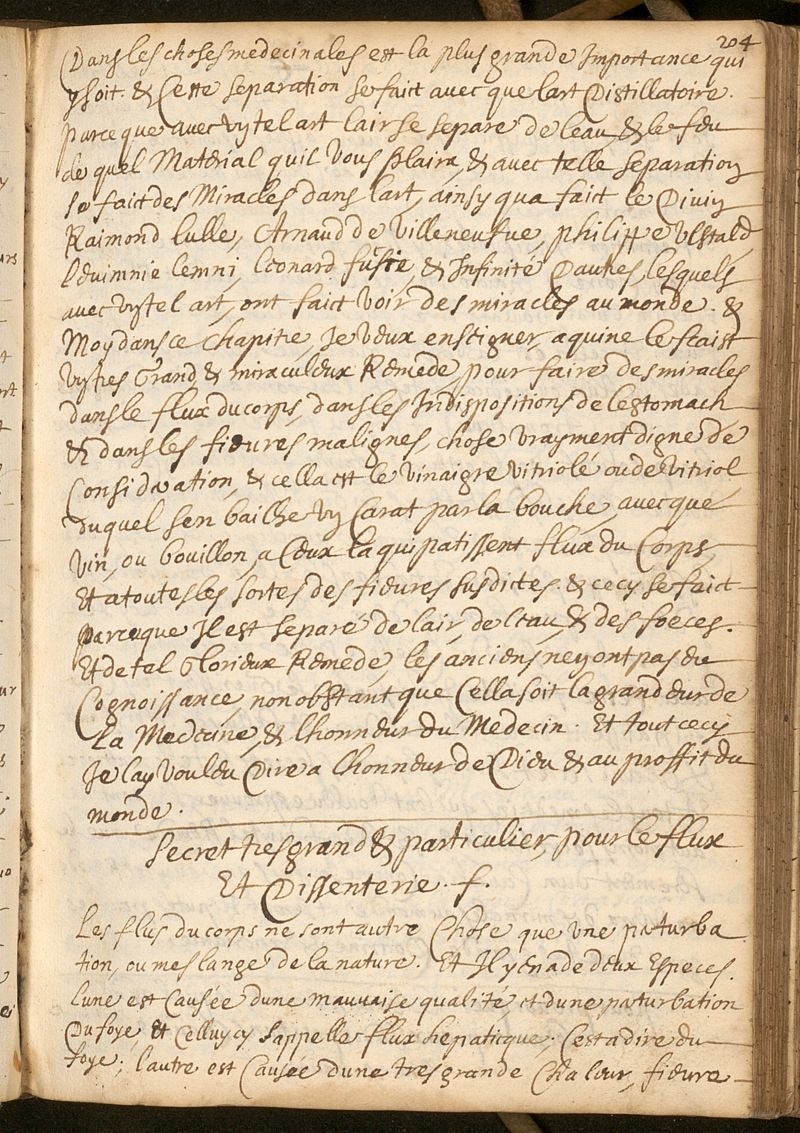 204
Dans les choses medecinales est la plus grande Importance qui
y soit. & Ceste separation se faict avec que l'art Distillatoire.
parce que avec vy tel art l'air se separe de l'eau, & le feu
de quel Material quil vous plaira, & avec telle separation
se faict des Miracles dans l'art, ainsy qua faict le Diviy
Raimond lulle, Arnaud de villeneufve, philippe Vlstald,
lemni, Leonard & Infinité Dautres, lesquels
avec vy tel art, ont faict voir des miracles au monde. &
Moy dans ce Chapitre, Je veux enseigner, a qui ne le scaist
Grand, & miraculeux Remede, pour faire des miracles
dans le flux du corps, dans les Indispositions de lestomach
& dans les fieures malignes, chose vrayment digne de
Consideration, & cella est le vinaigre vitriolé ou de vitriol
duquel sen bailhe vy Carat par la bouche, avec que
vin, ou bouillon, a Ceux la qui patissent flux du Corps,
Et a toutes les sortes des fieures susdictes. & cecy se faict
parceque Jl est separé de lair, de leau, & des foeces.
Et de tel Glorieux Remede, les anciens ney ont pas eu
Cognoissance, non obstant que Cella soit la grandeur de
La Medecine, & lhonneur du Medecin. Et tout cecy
Je lay vouleu Dire a lhonneur de Dieu & au proffit du
monde.
Secret tres grand & particulier, pour le flux
Et Dissenterie. f.
Les flus du corps ne sont autre Chose que vne paturba
tion, ou meslange de la nature. Et Jl y en a de deux Especes.
lune est Causée dune mauvaise qualité, et dune paturbation
Du foye, & Celluycy sappelle flux hepaticque, Cest a dire du
foye; lautre est Causée dune tres grande Chaleur, fieure